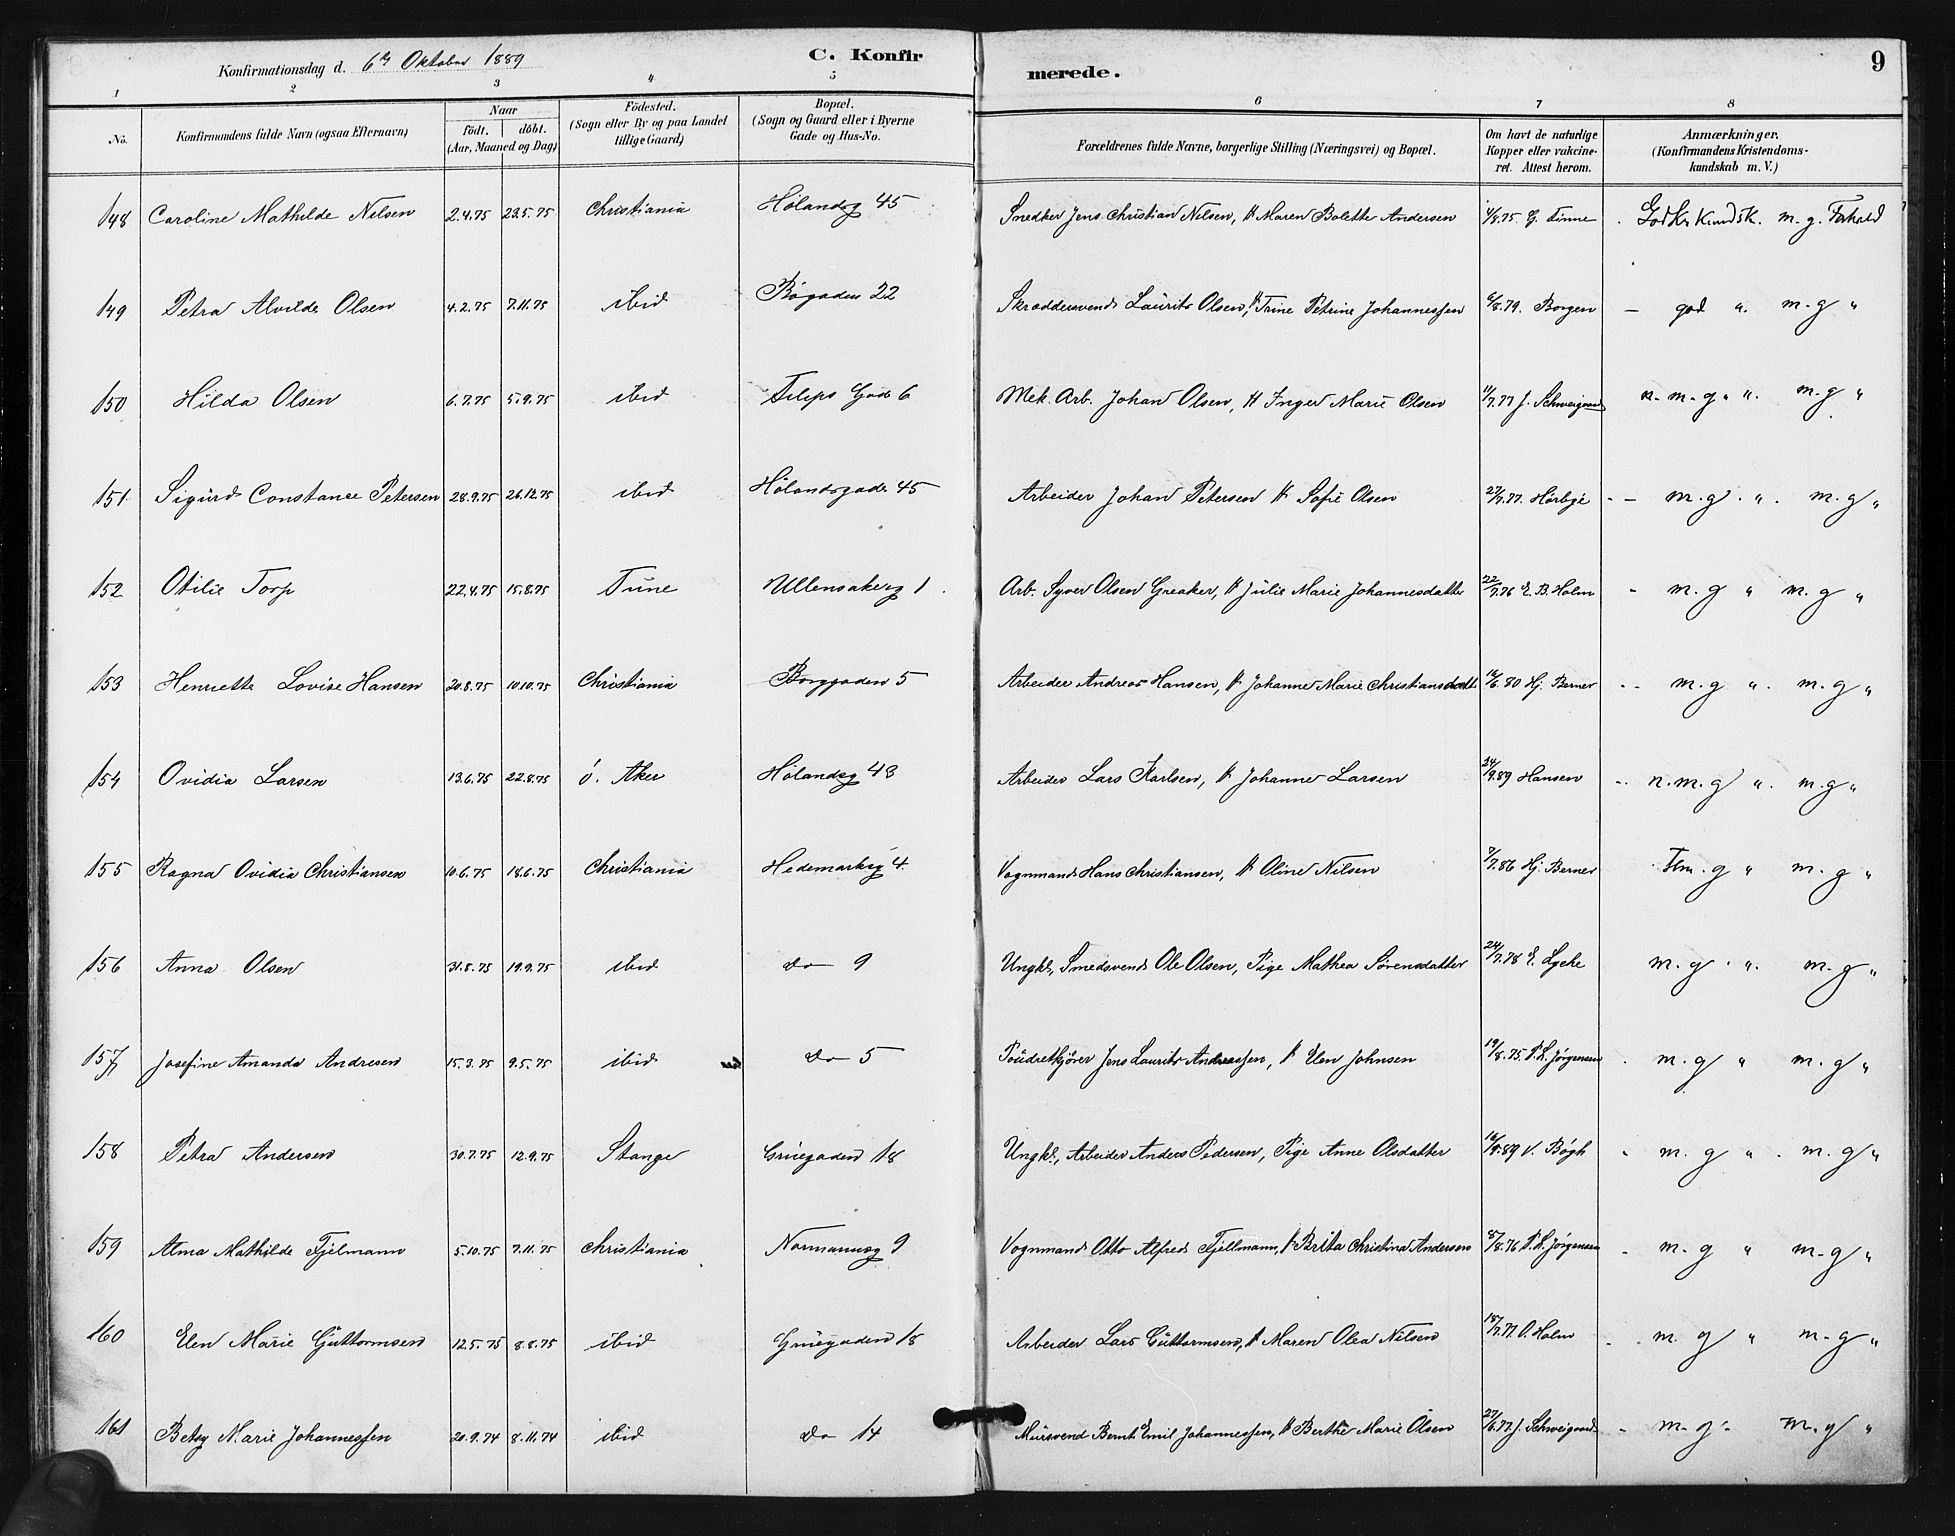 Konfirmationsdag d. 6te Oktober 1889 C. Konfirmerede. 9
1 2 3 4 5 6 7 8
No. Konfirmandens fulde Navn (ogsaa Efternavn) Naar födt. döbt. (Aar, Maaned og Dag) Födested. (Sogn eller By og paa Landet tillige Gaard) Bopæl. (Sogn og Gaard eller i Byerne Gade og Hus-No. Forældrenes fulde Navne, borgerlige Stilling (Næringsvei) og Bopæl. Om havt de naturlige Kopper eller vakcineret. Attest herom. Anmærkninger. (Konfirmandens Kristendomskundskab m. V.)
148 Caroline Mathilde Nilsen 2.4.75 23.5.75 Christiania Hølandsg 45 Snedker Jens Christian Nilsen, H Maren Bolette Andersen 4/8.75. G. Finne God Kr Kundsk. m. g. Forhold
149 Petra Alvilde Olsen 4.2.75 7.11.75 ibid Bøgaden 22 Skræddersvend Laurits Olsen, H Trine Petrine Johannessen 6/8.79. Borgen — god " m-g "
150 Hilda Olsen 6.7.75 5.9.75 ibid Filips Gade 6 Mek. Arb. Johan Olsen, H Inger Marie Olsen 11/7.77 J. Schweigaard n. m-g " " m-g "
151 Sigurd Constance Petersen 28.9.75 26.12.75 ibid Hølandsgade 45 Arbeider Johan Petersen H Sofie Olsen 27/7.77. Hørbye - - m.g. " m.g "
152 Otilie Torp 22.4.75 15.8.75 Tune Ullensakerg 1. Arb. Syver Olsen Greaker, H Julie Marie Johannesdatter 22/7.76 E. B. Holm - m. g " m. g "
153 Henriette Lovise Hansen 20.8.75 10.10.75 Christiania Borggaden 5 Arbeider Andreas Hansen, H Johanne Marie Christiansdatt. 16/6.80 Hj. Berner - - m. g " m. g "
154 Ovidia Larsen 13.6.75 22.8.75 ö. Aker Hølandsg 43 Arbeider Lars Karlsen, H Johanne Larsen 24/9.89 Hansen - n.m.g " m.g "
155 Ragna Ovidia Christiansen 10.6.75 18.6.75 Christiania Hedemarksg 4 Vognmand Hans Christiansen, H Oline Nilsen 7/7.86 Hj. Berner m. g " m. g "
156 Anna Olsen 31.8.75 19.9.75 ibid do 9 Ungkl, Smedsvend Ole Olsen, Pige Mathea Sørensdatter 24/7.78 E. Lyche m. g. " m. g "
157 Josefine Amanda Andresen 15.3.75 9.5.75 ibid do 5 Poudretkjører Jens Laurits Andreassen, H Elen Johnsen 19/8.75 P.L. Jørgensen m. g " m. g "
158 Petra Andersen 30.7.75 12.9.75 Stange Grüegaden 18 Ungkl, Arbeider Anders Pedersen, Pige Anne Olsdatter 16/9.89 V. Bögh - m. g " m. g "
159 Alma Mathilde Fjelmann 5.10.75 7.11.75 Christiania Normannsg 9 Vognmand Otto Alfred Fjellmann, H Brita Christina Andersen 8/8.76 P.L. Jørgensen - m. g " m-g "
160 Elen Marie Guttormsen 12.5.75 8.8.75 ibid Grüegaden 18 Arbeider Lars Guttormsen, H Maren Olea Nilsen 18/7.77 O. Holm - m. g " m-g "
161 Betsy Marie Johannessen 20.9.74 8.11.74 ibid do 14 Mursvend Bernt Emil Johannessen, H Berthe Marie Olsen 27/6.77. J. Schweigaard - m-g - m.g "